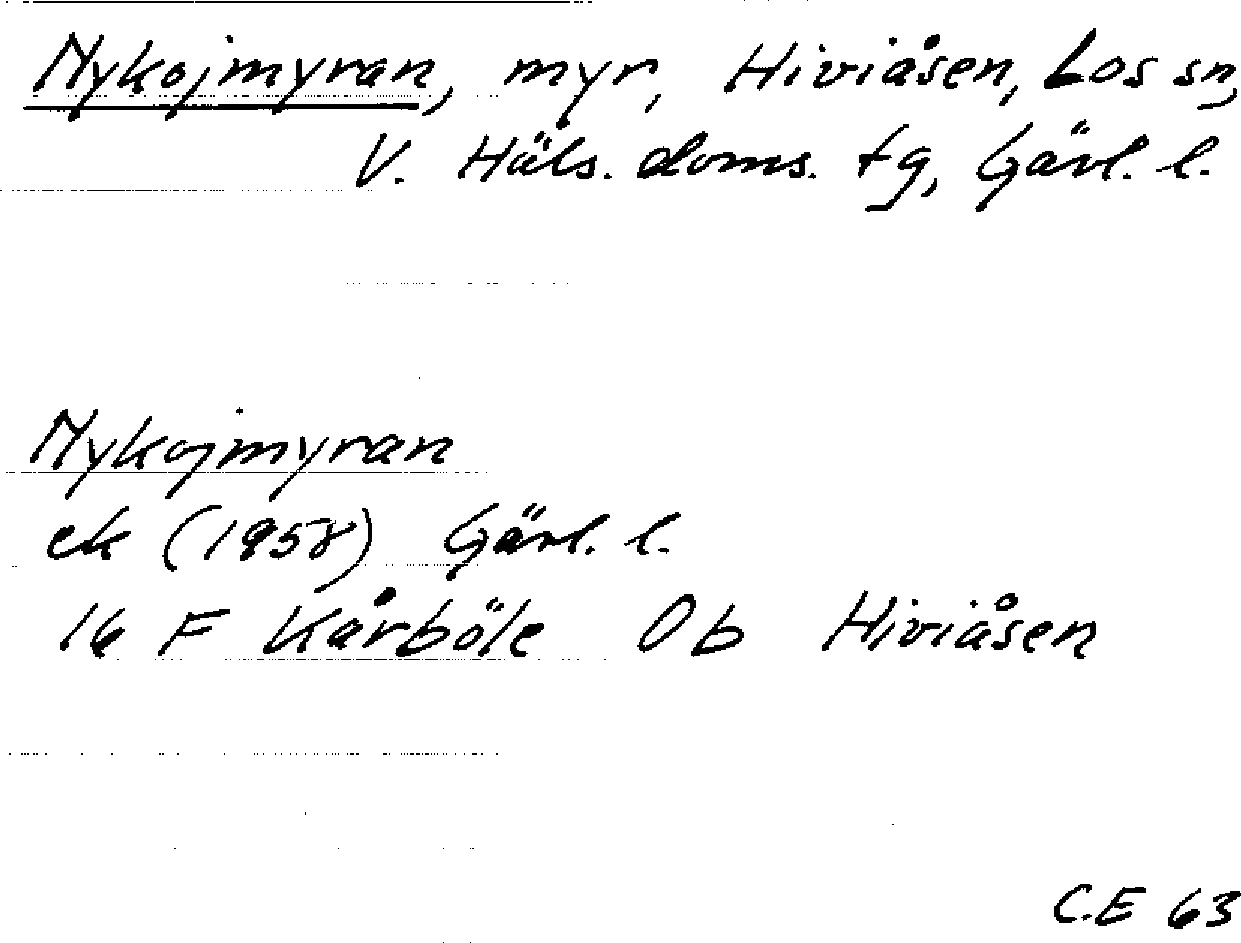 Nykojmyran, myr, Hiviåsen, Los sn,
V. Häls. doms. tg, Gävl. l.
Nykojmyran
ek (1958) Gävl. l.
16 F Kårböle 0 b Hiviåsen
C.E 63